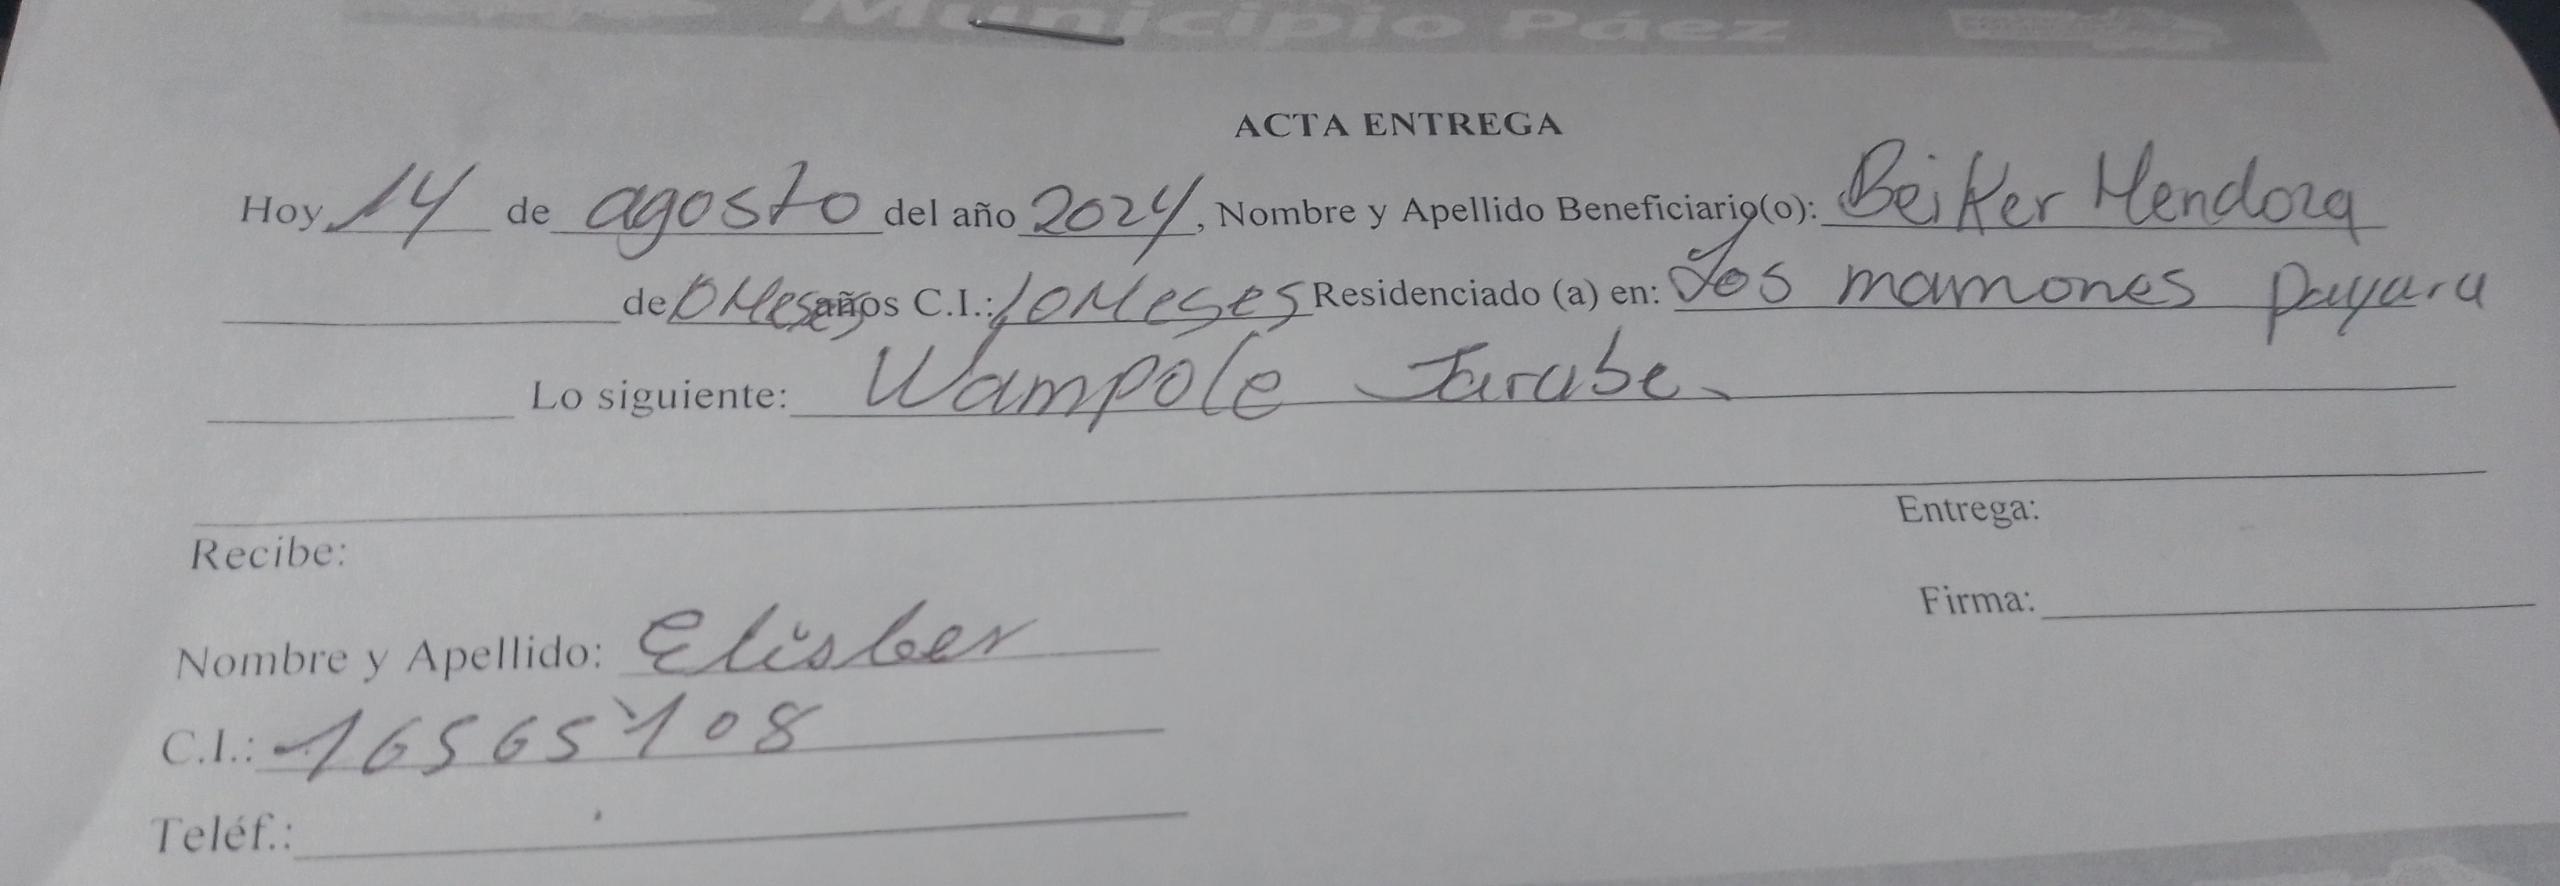 Municipio Páez
ACTA ENTREGA
Hoy 14 de agosto del año 2024, Nombre y Apellido Beneficiario(o): Beiker Mendoza
de 0 Meses años C.I.: 10 Meses Residenciado (a) en: Los mamones payara
Lo siguiente: Wampole Jarabe
Entrega:
Recibe:
Firma:
Nombre y Apellido: Elisber
C.I.: 16565108
Teléf.: